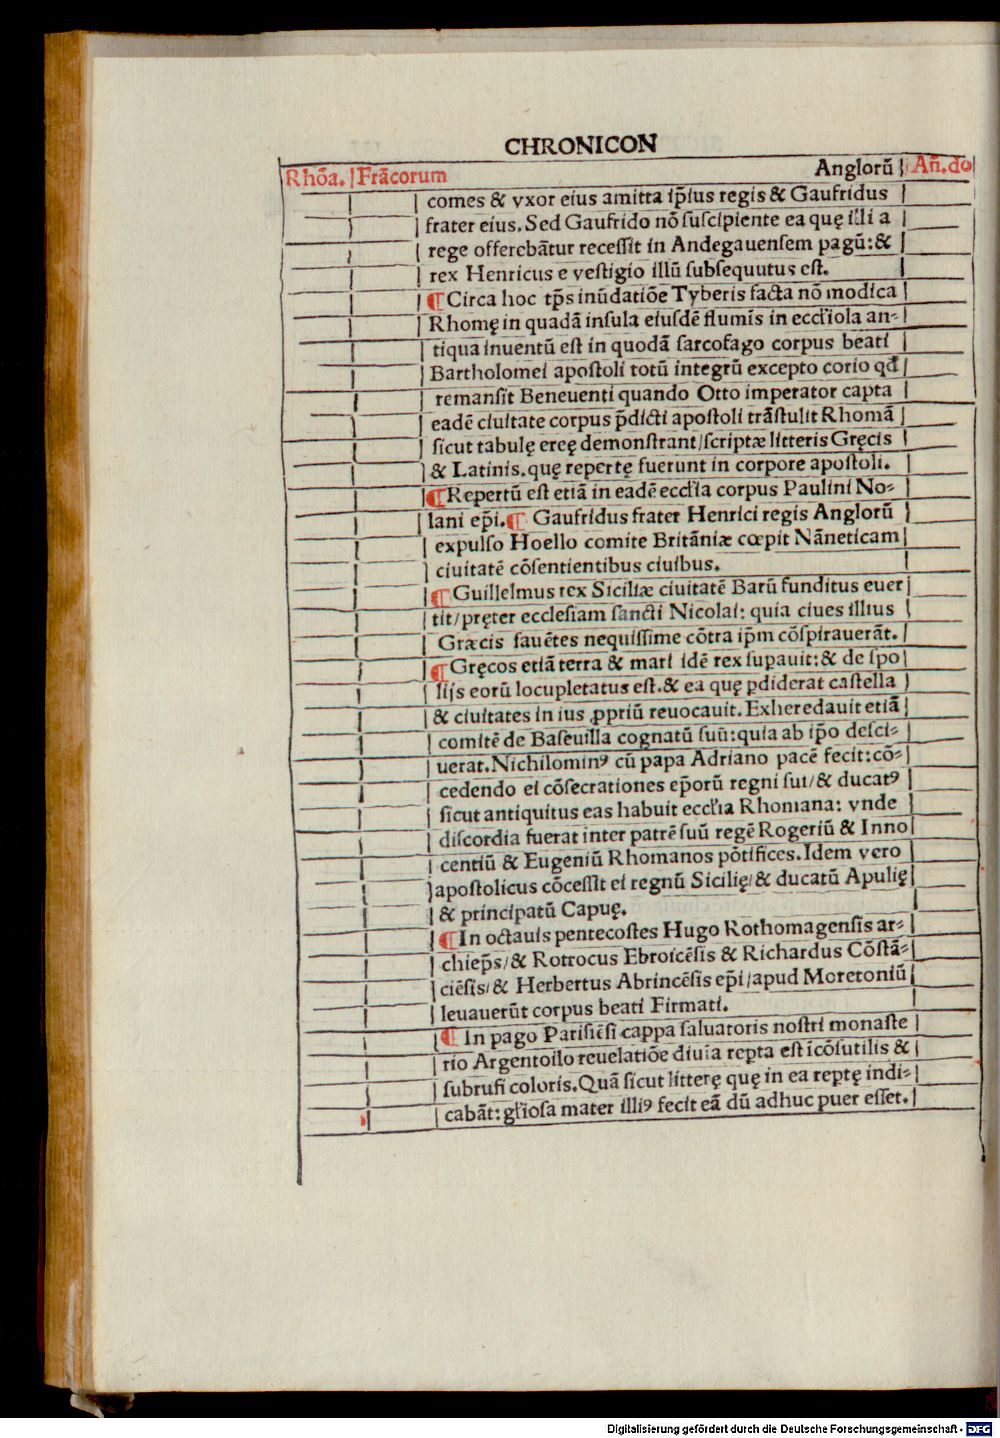 CHRONICON
Rhōa. Frācorum Anglorū Añ.do
comes & vxor eius amitta ip̄ius regis & Gaufridus
frater eius. Sed Gaufrido nō ſuſcipiente ea quę illi a
rege offerebātur receſſit in Andegauenſem pagū: &
rex Henricus e veſtigio illū ſubſequutus eſt.
¶ Circa hoc tp̄s inūdatiōe Tyberis facta nō modica
Rhomę in quadā inſula eiuſdē flumīs in eccl̄iola an-
tiqua inuentū eſt in quodā ſarcofago corpus beati
Bartholomei apoſtoli totū integrū excepto corio qđ
remanſit Beneuenti quando Otto imperator capta
eadē ciuitate corpus p̄dicti apoſtoli trāſtulit Rhomā
ſicut tabulę ereę demonſtrant/ſcriptæ litteris Gręcis
& Latinis. quę repertę fuerunt in corpore apoſtoli.
¶ Repertū eſt etiā in eadē eccl̄ia corpus Paulini No-
lani ep̄i. ¶ Gaufridus frater Henrici regis Anglorū
expulſo Hoello comite Britāniæ cœpit Nāneticam
ciuitatē cōſentientibus ciuibus.
¶ Guillelmus rex Siciliæ ciuitatē Barū funditus euer
tit/pręter eccleſiam ſancti Nicolai: quia ciues illius
Græcis fauētes nequiſſime cōtra ip̄m cōſpirauerāt.
¶ Gręcos etiā terra & mari idē rex ſupauit: & de ſpo
lijs eorū locupletatus eſt. & ea quę ꝑdiderat caſtella
& ciuitates in ius ꝓpriū reuocauit. Exheredauit etiā
comitē de Baſeuilla cognatū ſuū: quia ab ip̄o deſci-
uerat. Nichilominꝰ cū papa Adriano pacē fecit: cō-
cedendo ei cōſecrationes ep̄orū regni ſui/& ducatꝰ
ſicut antiquitus eas habuit eccl̄ia Rhomana: vnde
diſcordia fuerat inter patrē ſuū regē Rogeriū & Inno
centiū & Eugeniū Rhomanos pōtifices. Idem vero
apoſtolicus cōceſſit ei regnū Sicilię/& ducatū Apulię
& principatū Capuę.
¶ In octauis pentecoſtes Hugo Rothomagenſis ar-
chiep̄s/& Rotrocus Ebroicēſis & Richardus Cōſtā-
ciēſis/& Herbertus Abrincēſis ep̄i/apud Moretoniū
leuauerūt corpus beati Firmati.
¶ In pago Pariſiēſi cappa ſaluatoris noſtri monaſte
rio Argentoilo reuelatiōe diuīa reꝑta eſt īcōſutilis &
ſubrufi coloris. Quā ſicut litterę quę in ea reꝑtę indi-
cabāt: gl̄ioſa mater illiꝰ fecit eā dū adhuc puer eſſet.
Digitalisierung gefördert durch die Deutsche Forschungsgemeinschaft - DFG